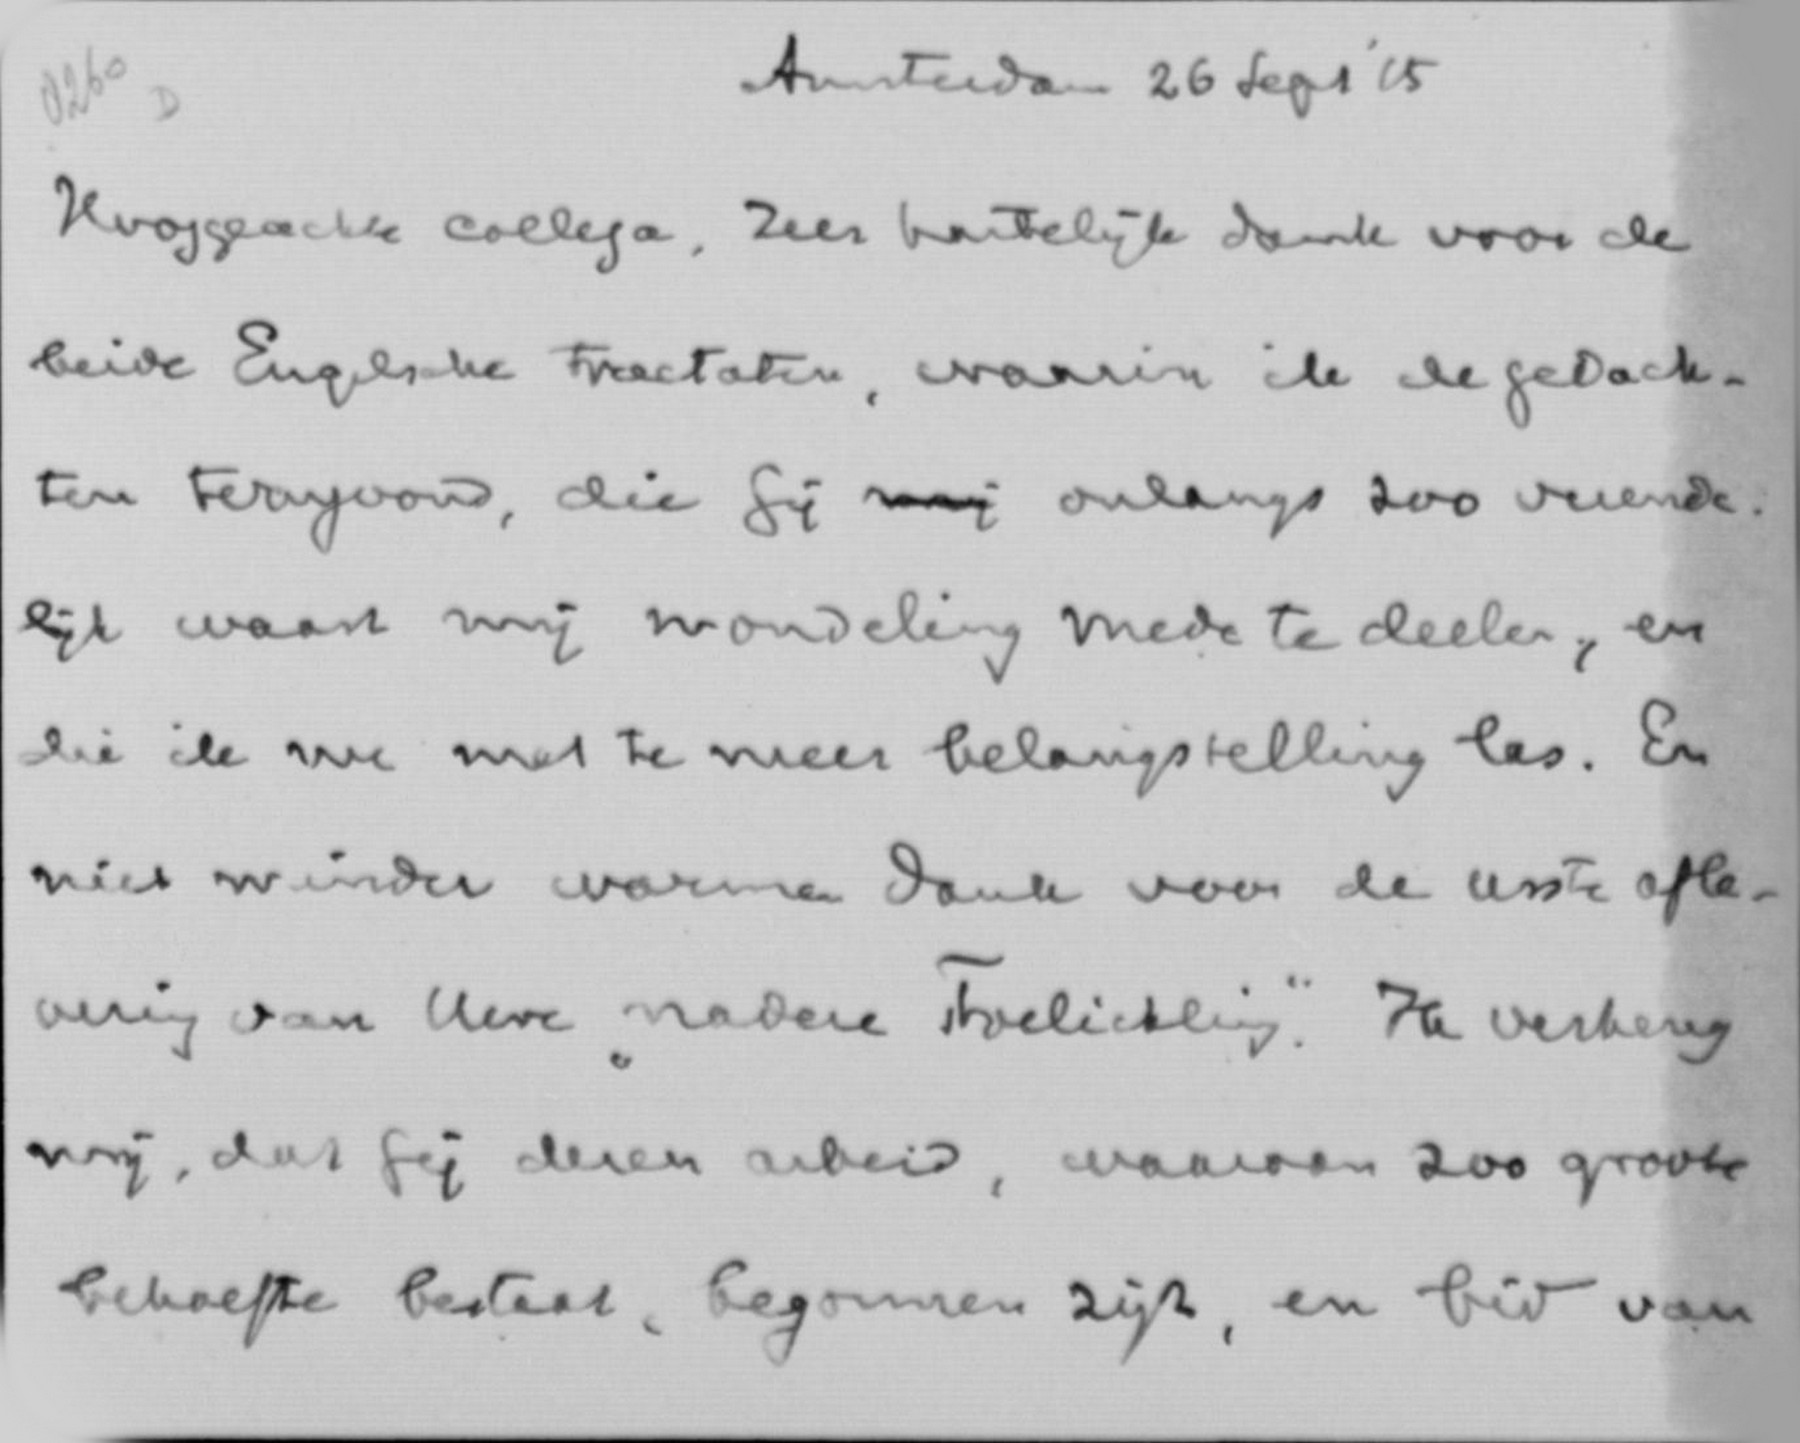 0260 D
Amsterdam 26 Sept '15
Hooggeachte collega, Zeer hartelijk dank voor de
beide Engelsche tractaten, waarin ik de gedach-
ten terugvond, die Gij mij onlangs zoo vriende-
lijk waart mij mondeling mede te deelen, en
die ik nu met te meer belangstelling las. En
niet minder warmen dank voor de eerste afle-
vering van Uwe „nadere Toelichting". Het verheug
mij, dat Gij dezen arbeid, waaraan zoo groote
behoefte bestaat, begonnen zijt, en bid van